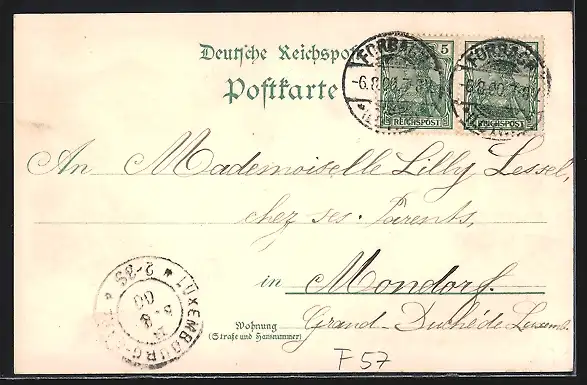 Deutsche Reichspost
Postkarte
FORBACH
-6.8.00
5
REICHSPOST
FORBACH
REICHSPOST
An Mademoiselle Lilly Lessel,
chez ses Parents,
in Mondorf.
Grand-Duché de Luxemb.
Wohnung
(Straße und Hausnummer)
LUXEMBOURG
2-3S
8
00
F 57